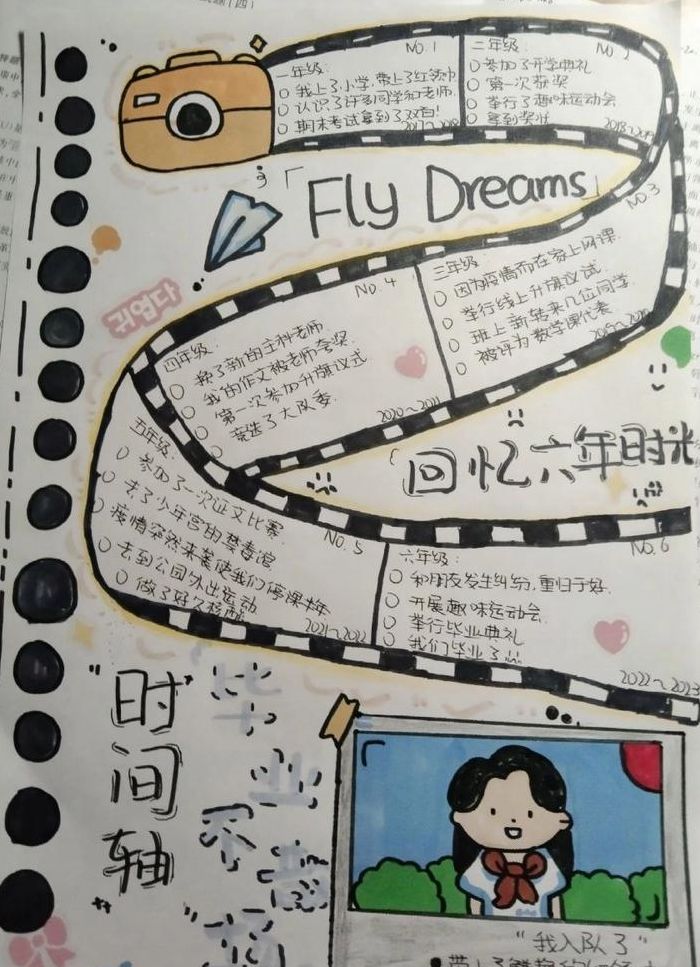 NO.1
一年级:
我上了小学,带上了红领巾
认识了许多同学和老师
期末考试拿到了双百!
2017~2018
二年级:
参加了开学典礼
第一次获奖
举行了趣味运动会
拿到奖状
2018~2019
「Fly Dreams」
NO.3
三年级:
因为疫情而在家上网课.
举行线上升旗仪式.
班上新转来几位同学.
被评为数学课代表.
NO.4
四年级:
换了新的主科老师.
我的作文被老师夸奖
第一次参加升旗仪式
竞选了大队委.
2020~2021
귀엽다
回忆六年时光
NO.5
五年级:
参加了一次征文比赛.
去了少年宫的禁毒馆
疫情突然来袭使我们停课半年
去到公园外出运动
做了好久核酸
2021~2022
NO.6
六年级:
和朋友发生纠纷,重归于好.
开展趣味运动会.
举行毕业典礼
我们毕业了!!!
2022~2023
"时间轴"
毕业不
"我入队了"